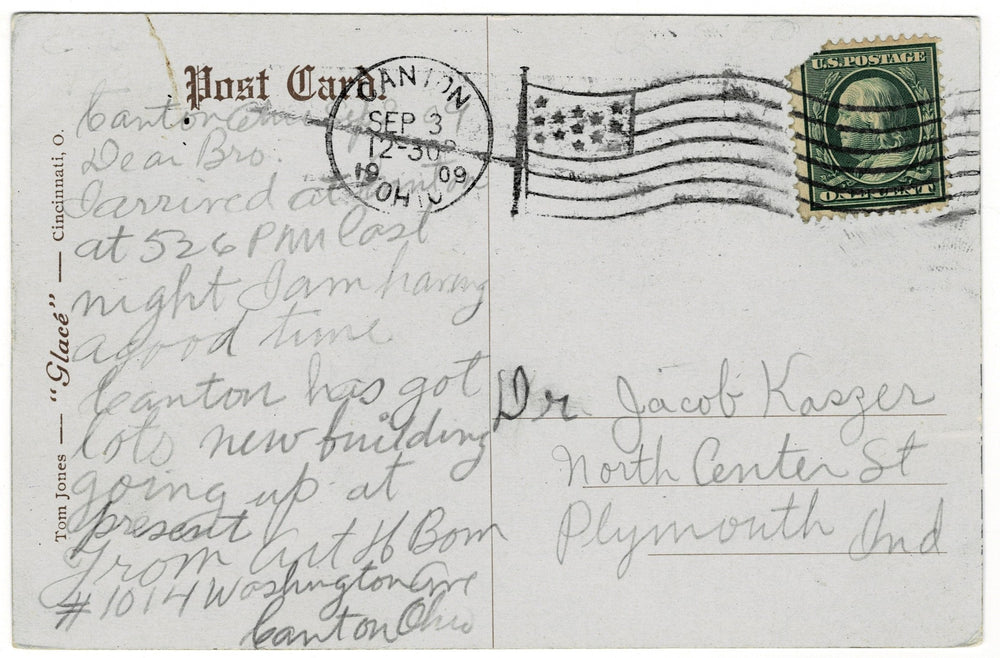 Post Card.
CANTON
SEP 3
12-30P
19 09
OHIO
U.S. POSTAGE
ONE CENT
Tom Jones — "Glacé" — Cincinnati, O.
Canton
Dear Bro.
I arrived at Canton
at 526 PM last
night I am having
a good time
Canton has got
lots new building
going up at
present
From Art H Bom
#1014 Washington Ave
Canton Ohio
Dr. Jacob Kaszer
North Center St
Plymouth Ind